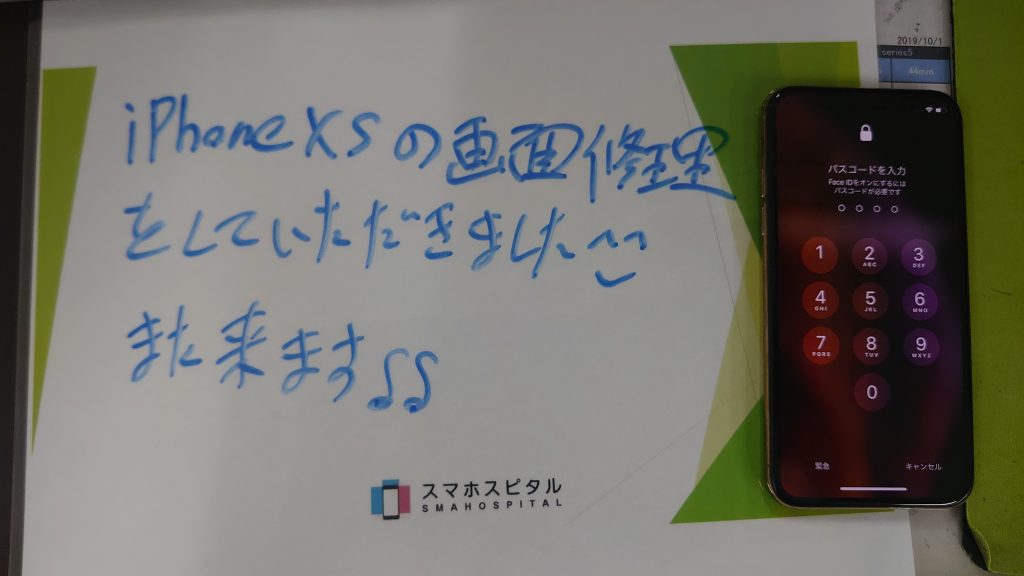 iPhone XSの画面修理
をしていただきました
また来ます♪♪
スマホスピタル
SMAHOSPITAL
2019/10/1
series5
44mm
パスコードを入力
Face IDをオンにするには
パスコードが必要です
1
2
ABC
3
DEF
4
GHI
5
JKL
6
MNO
7
PQRS
8
TUV
9
WXYZ
0
緊急
キャンセル